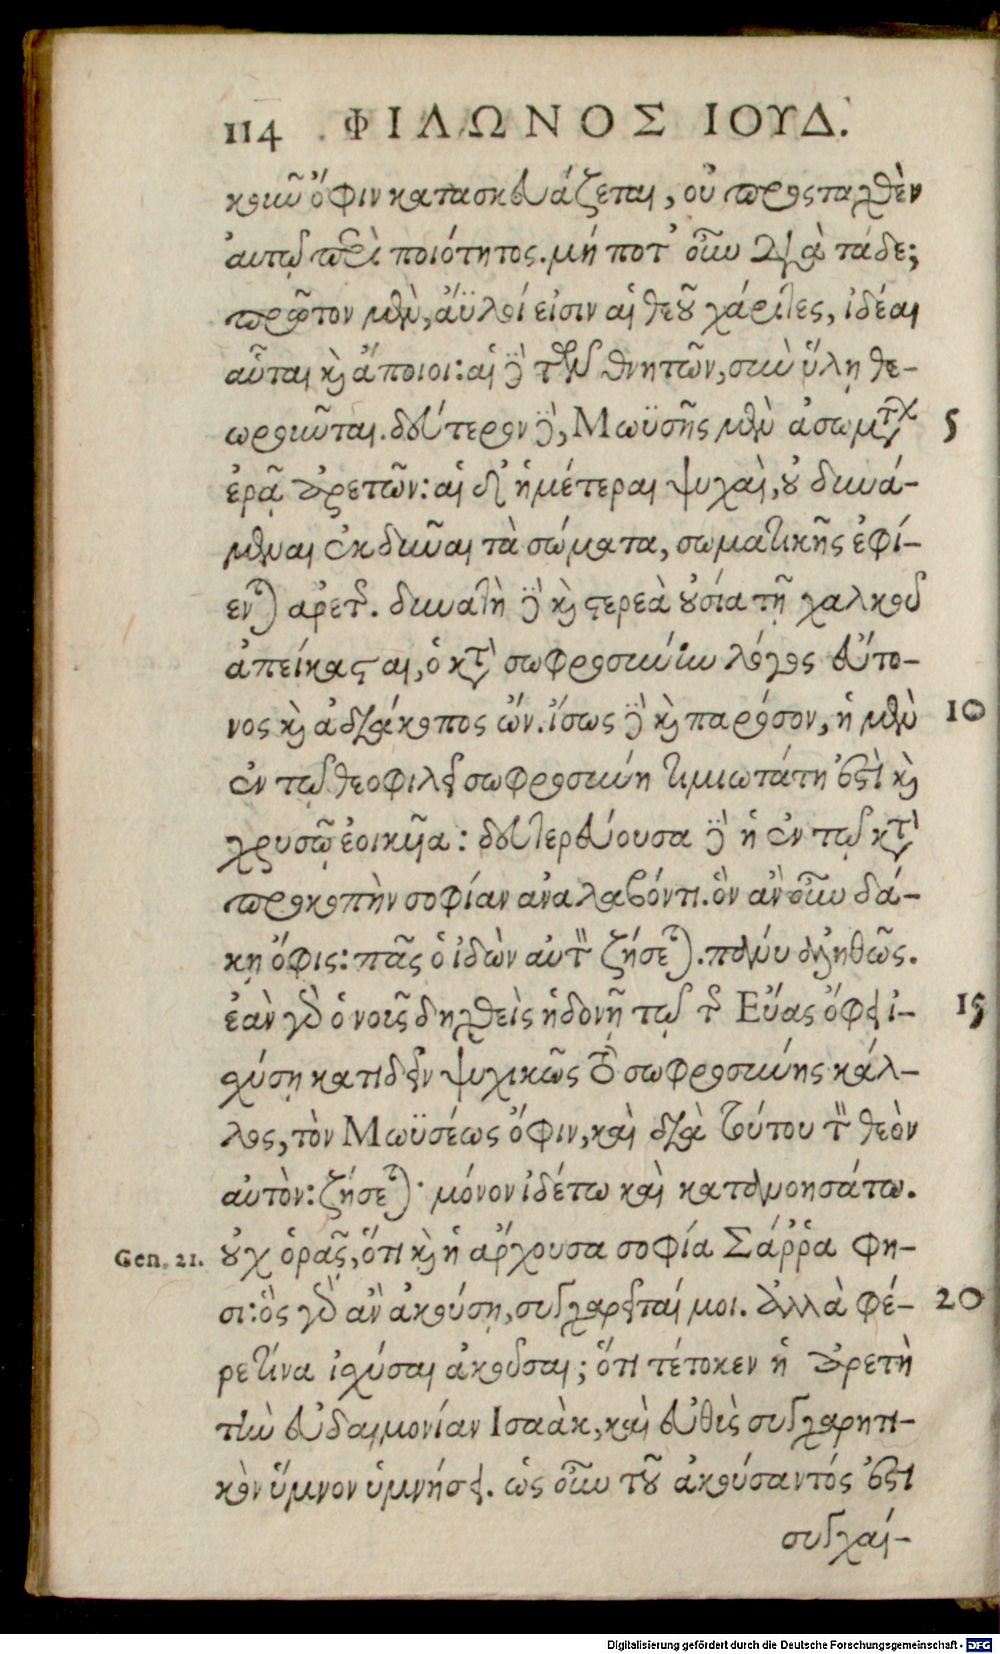 114 ΦΙΛΩΝΟΣ ΙΟΥΔ.
κοῦν ὄφιν κατασκευάζεται, οὐ προσταχθὲν
αὐτῷ περὶ ποιότητος. μή ποτ' οὖν διὰ τάδε;
πρῶτον μὲν, ἄϋλοί εἰσιν αἱ θεοῦ χάριτες, ἰδέαι
αὗται καὶ ἄποιοι: αἱ δὲ τῶν θνητῶν, σὺν ὕλῃ θε-
ωροῦνται. δεύτερον δὲ, Μωϋσῆς μὲν ἀσωμάτων 5
ἐρᾷ ἀρετῶν: αἱ δ' ἡμέτεραι ψυχαὶ, οὐ δυνά-
μεναι ἐκδῦναι τὰ σώματα, σωματικῆς ἐφί-
ενται ἀρετῆς. δυνατὴ δὲ καὶ στερεὰ οὐσία τῇ χαλκοῦ
ἀπείκασται, ὁ κατὰ σωφροσύνην λόγος εὔτο-
νος καὶ ἀδιάκοπος ὤν. ἴσως δὲ καὶ παρόσον, ἡ μὲν 10
ἐν τῷ θεοφιλεῖ σωφροσύνη τιμιωτάτη ἐστὶ καὶ
χρυσῷ ἐοικυῖα: δευτερεύουσα δὲ ἡ ἐν τῷ κατὰ
προκοπὴν σοφίαν ἀναλαβόντι. ὃν ἂν οὖν δά-
κῃ ὄφις: πᾶς ὁ ἰδὼν αὐτὸν ζήσεται. πάνυ ἀληθῶς.
ἐὰν γὰρ ὁ νοῦς δηχθεὶς ἡδονῇ τῷ τῆς Εὔας ὄφει ἰ- 15
σχύσῃ κατιδεῖν ψυχικῶς τὸ σωφροσύνης κάλ-
λος, τὸν Μωϋσέως ὄφιν, καὶ διὰ τούτου τὸν θεὸν
αὐτὸν: ζήσεται· μόνον ἰδέτω καὶ κατανοησάτω.
Gen. 21. οὐχ ὁρᾷς, ὅτι καὶ ἡ ἄρχουσα σοφία Σάῤῥα φη-
σι: ὃς γὰρ ἂν ἀκούσῃ, συγχαρεῖταί μοι. ἀλλὰ φέ- 20
ρε τίνα ἰσχύσαι ἀκοῦσαι; ὅτι τέτοκεν ἡ ἀρετὴ
τὴν εὐδαιμονίαν Ισαὰκ, καὶ εὐθὺς συγχαρητι-
κὸν ὕμνον ὑμνήσει. ὡς οὖν τοῦ ἀκούσαντός ἐστι
συγχαί-
Digitalisierung gefördert durch die Deutsche Forschungsgemeinschaft - DFG